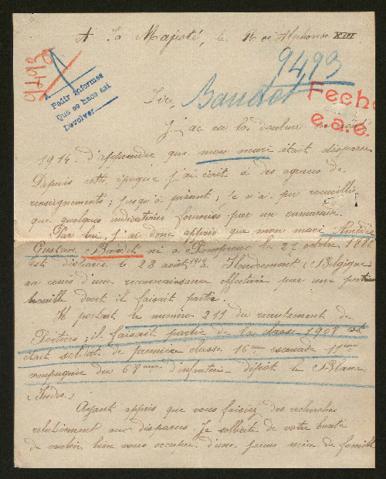 A Sa Majesté, le Roi Alphonse XIII
9493
9493
Pedir informes
Que se hace así
Devolver
Sire, Baudet
Fecho
e.a.e.
J'ai eu la douleur
1914 d'apprendre que mon mari était disparu
Depuis cette époque j'ai écrit à des agences de
renseignements ; jusqu'à présent, je n'ai pu recueillir
que quelques indications fournies par un camarade.
Par lui, j'ai donc appris que mon mari
Gustave né à le 22 octobre 1888
est disparu le 28 août 1914 à (Belgique
au cours d'une reconnaissance effectuée par une
dont il faisait partie.
Il portait le numéro 211 du recrutement de
Poitiers ; il faisait partie de la classe 1908 et
était soldat de première classe 16me escouade 11me
compagnie du 68me d'infanterie dépôt le Blanc
(Indre)
Ayant appris que vous faisiez des recherches
relativement aux disparus. Je sollicite de votre bonté
de vouloir bien vous occuper d'une jeune mère de famille